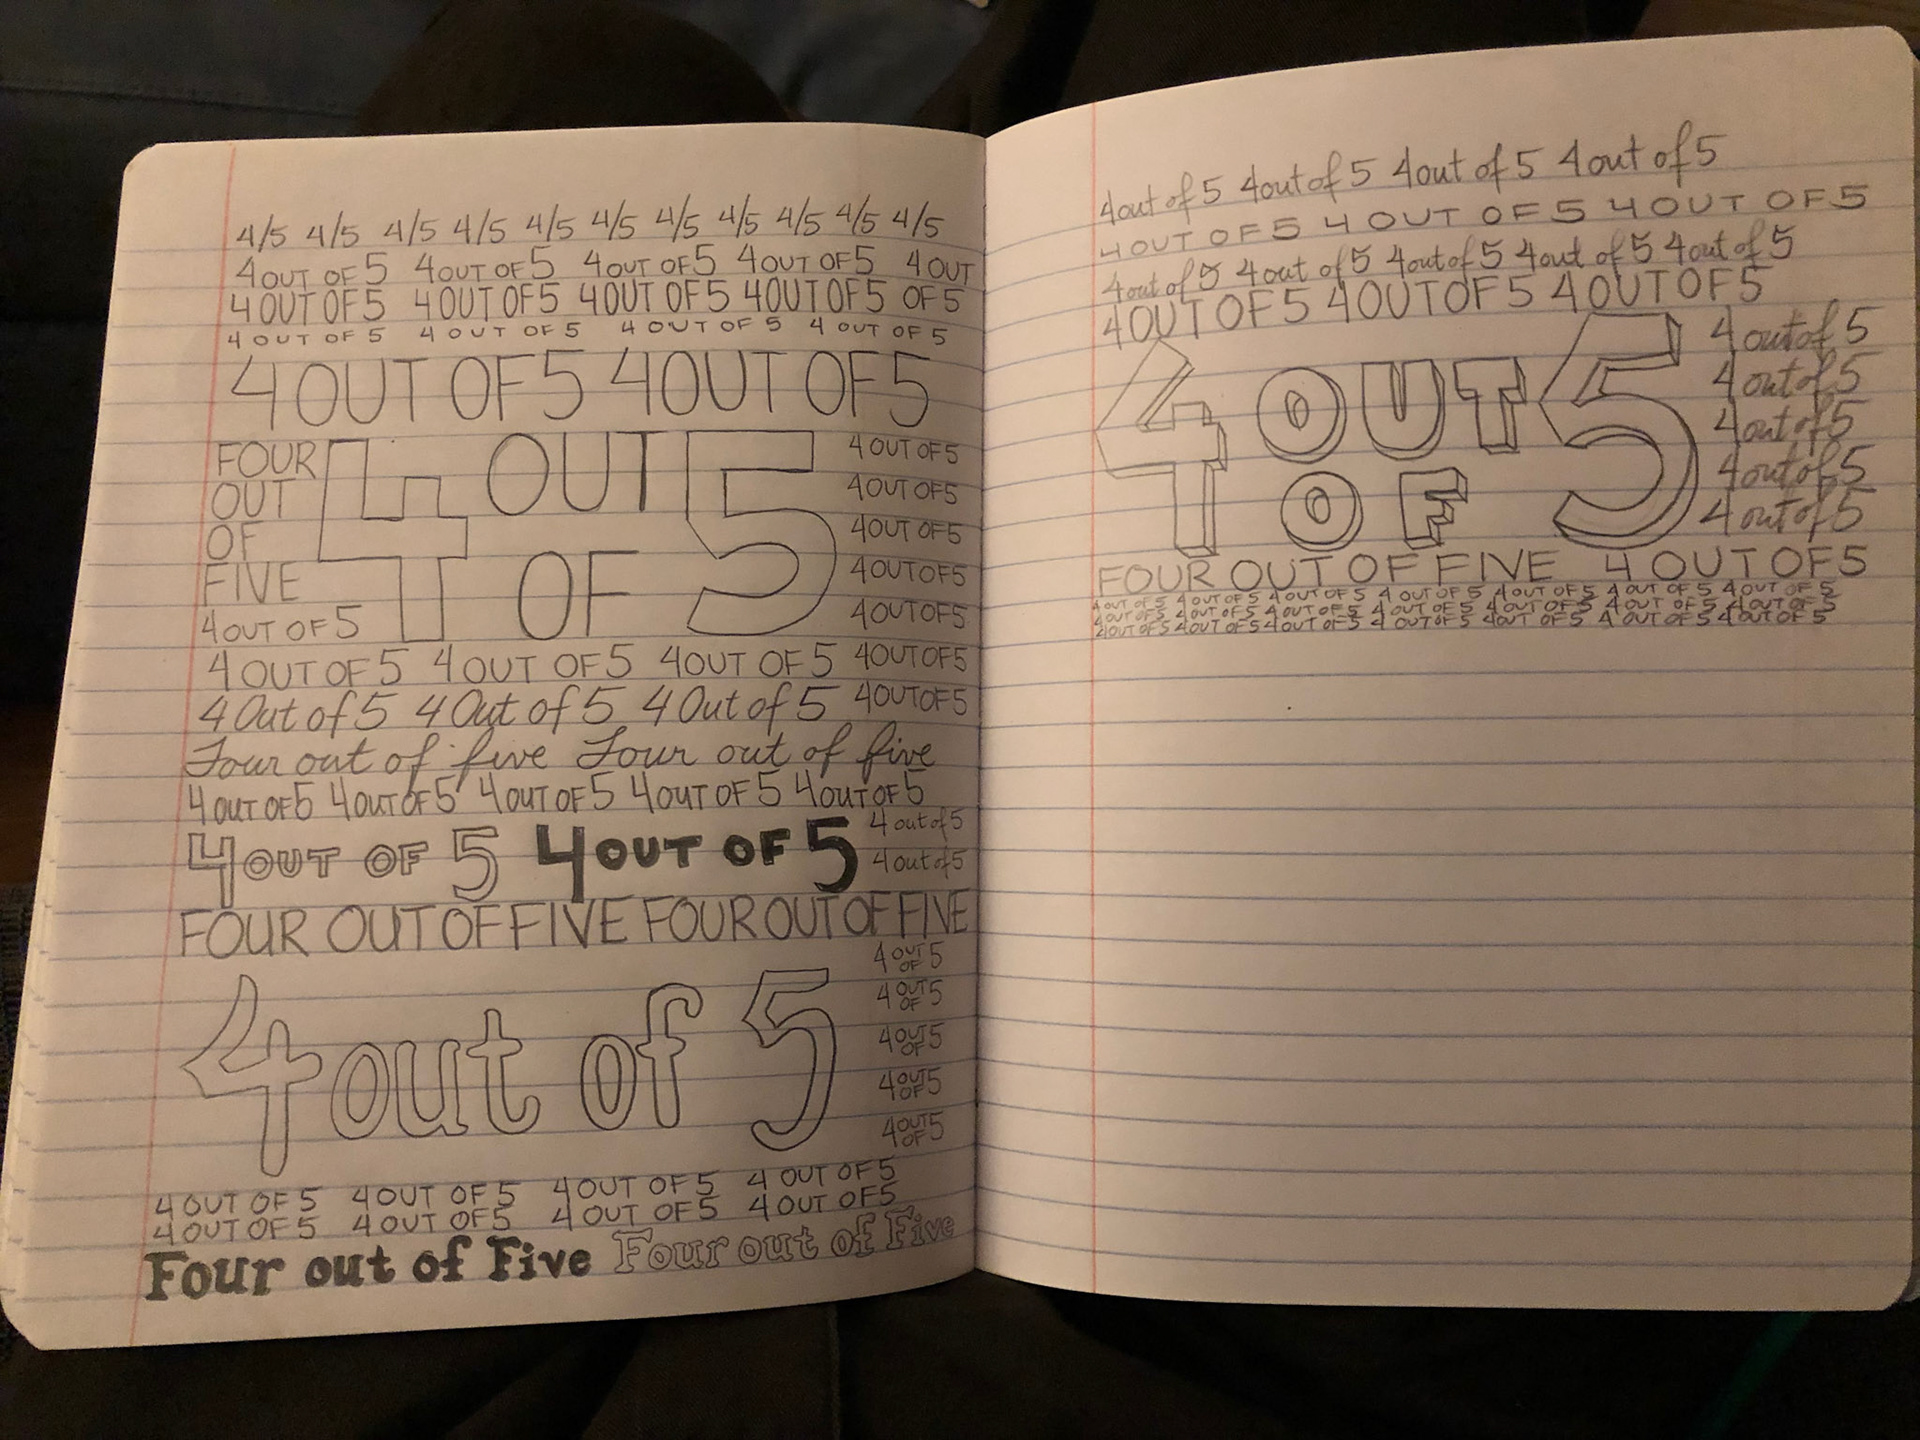 4/5 4/5 4/5 4/5 4/5 4/5 4/5 4/5 4/5 4/5 4/5
4 OUT OF 5 4 OUT OF 5 4 OUT OF 5 4 OUT OF 5 4 OUT
4 OUT OF 5 4 OUT OF 5 4 OUT OF 5 4 OUT OF 5 OF 5
4 OUT OF 5 4 OUT OF 5 4 OUT OF 5 4 OUT OF 5
4 OUT OF 5 4 OUT OF 5
FOUR
OUT
OF
FIVE
4 OUT OF 5
4 OUT 5
OF
4 OUT OF 5
4 OUT OF 5
4 OUT OF 5
4 OUT OF 5
4 OUT OF 5
4 OUT OF 5 4 OUT OF 5 4 OUT OF 5 4 OUT OF 5
4 Out of 5 4 Out of 5 4 Out of 5 4 OUT OF 5
Four out of five Four out of five
4 OUT OF 5 4 OUT OF 5 4 OUT OF 5 4 OUT OF 5 4 OUT OF 5
4 OUT OF 5 4 OUT OF 5
4 out of 5
4 out of 5
FOUR OUT OF FIVE FOUR OUT OF FIVE
4 out of 5
4 OUT OF 5
4 OUT OF 5
4 OUT OF 5
4 OUT OF 5
4 OUT OF 5
4 OUT OF 5 4 OUT OF 5 4 OUT OF 5 4 OUT OF 5
4 OUT OF 5 4 OUT OF 5 4 OUT OF 5 4 OUT OF 5
Four out of Five Four out of Five
4 out of 5 4 out of 5 4 out of 5 4 out of 5
4 OUT OF 5 4 OUT OF 5 4 OUT OF 5
4 out of 5 4 out of 5 4 out of 5 4 out of 5 4 out of 5
4 OUT OF 5 4 OUT OF 5 4 OUT OF 5
4 OUT 5
OF
4 out of 5
4 out of 5
4 out of 5
4 out of 5
4 out of 5
FOUR OUT OF FIVE 4 OUT OF 5
4 OUT OF 5 4 OUT OF 5 4 OUT OF 5 4 OUT OF 5 4 OUT OF 5 4 OUT OF 5 4 OUT OF 5
4 OUT OF 5 4 OUT OF 5 4 OUT OF 5 4 OUT OF 5 4 OUT OF 5 4 OUT OF 5 4 OUT OF 5
4 OUT OF 5 4 OUT OF 5 4 OUT OF 5 4 OUT OF 5 4 OUT OF 5 4 OUT OF 5 4 OUT OF 5